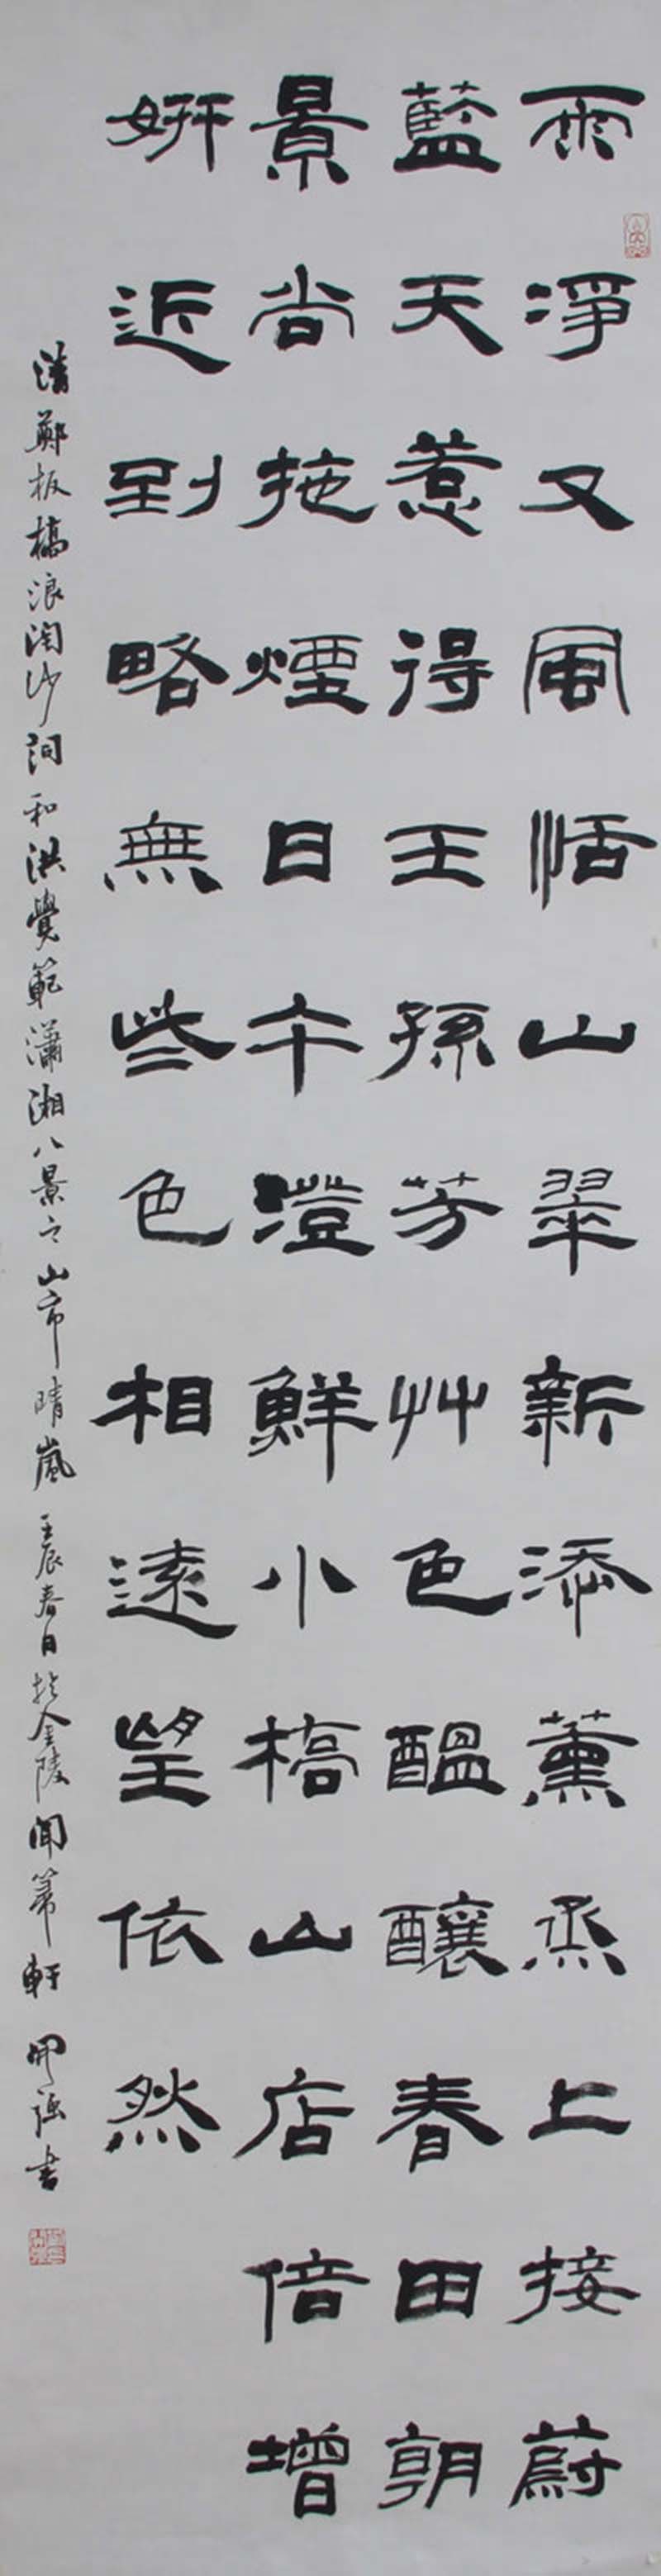 雨淨又風恬山翠新添薰烝上接蔚
藍天惹得王孫芳艸色醞釀春田朝
景尚拖煙日午澄鮮小橋山店倍增
妍近到略無些色相遠望依然
清鄭板橋浪淘沙詞和洪覺範瀟湘八景之山市晴嵐 壬辰春日於金陵聞箏軒 書